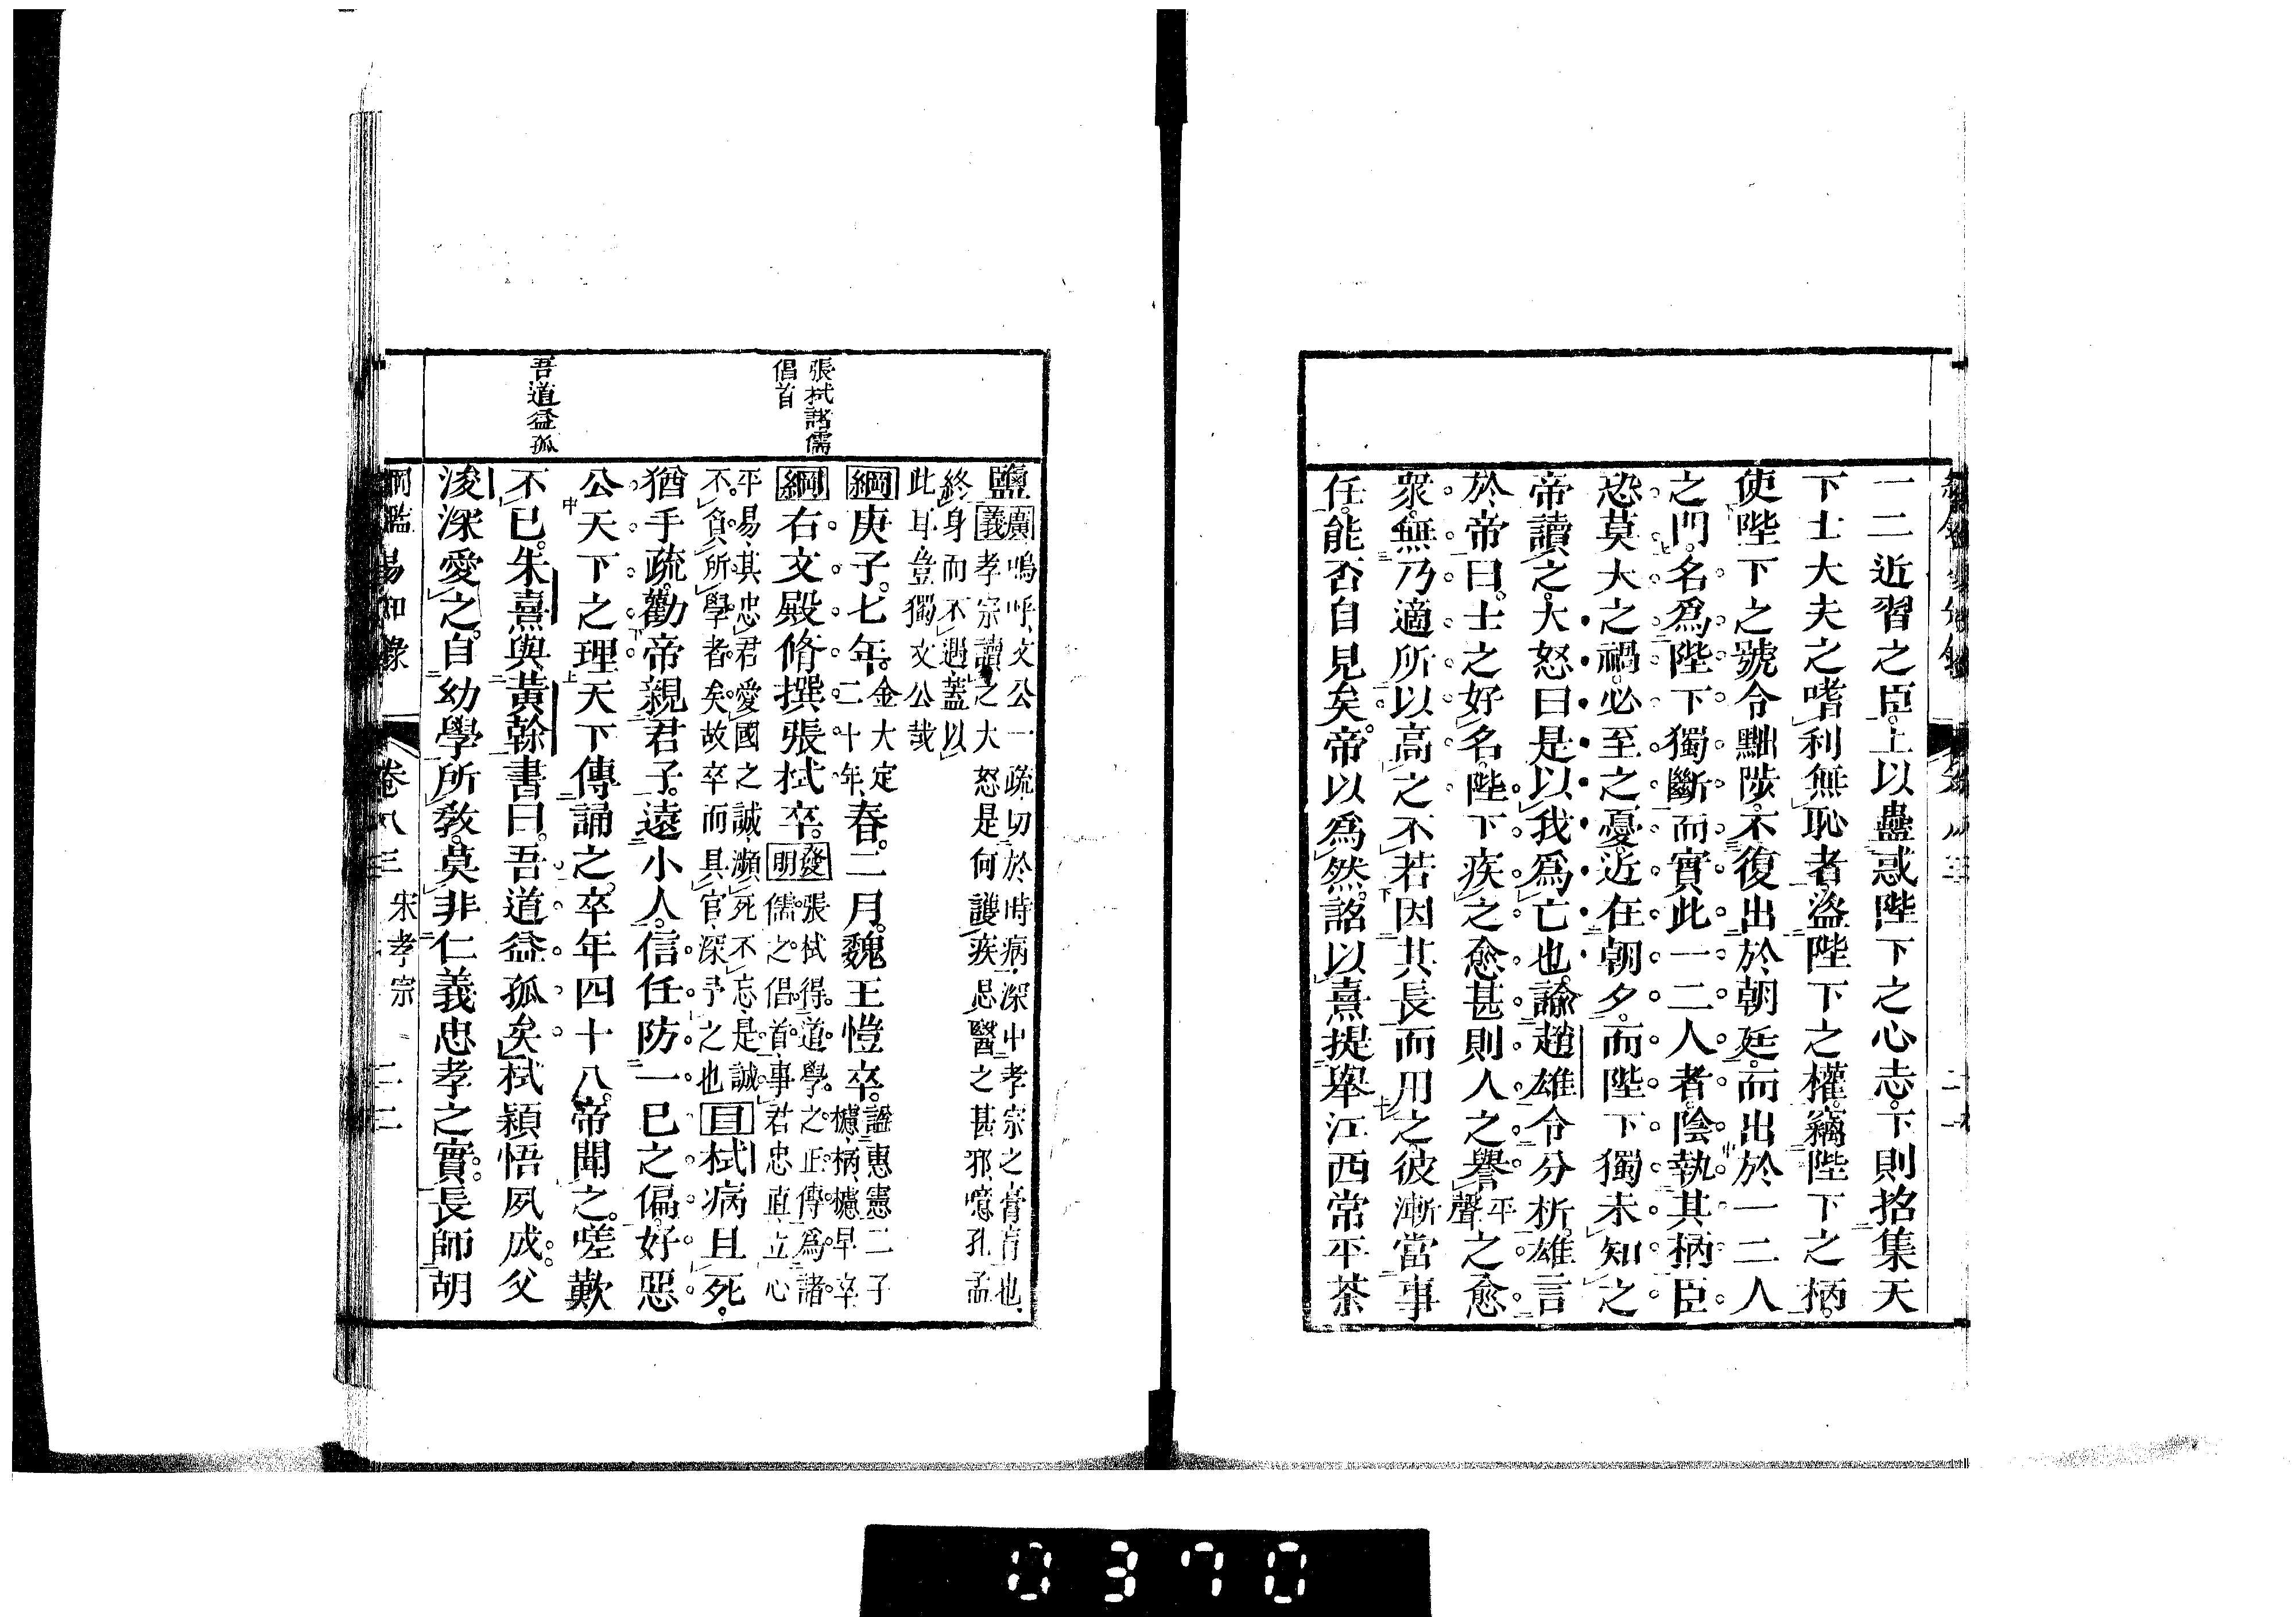 一二近習之臣。上以蠱惑陛下之心志。下則招集天
下士大夫之嗜利無恥者。盜陛下之權。竊陛下之柄。
使陛下之號令黜陟。不復出於朝廷。而出於一二人
之門。名爲陛下獨斷。而實此一二人者。陰執其柄。臣
恐莫大之禍。必至之憂。近在朝夕。而陛下獨未知之
帝讀之。大怒曰。是以我爲亡也。諭趙雄令分析。雄言
於帝曰。士之好名。陛下疾之愈甚。則人之譽平聲之愈
衆。無乃適所以高之。不若因其長而用之。彼漸當事
任。能否自見矣。帝以爲然。詔以熹提舉江西常平茶
鹽廣義嗚呼、文公一疏、切於時病、深中孝宗之膏肓也、
孝宗讀之大怒是何護疾忌醫之甚邪、噫孔孟
終身而不遇、蓋以
此耳、豈獨文公哉
綱庚子。七年。金大定二十年、春。二月。魏王愷卒。謚惠憲二子
攄、柄、攄早卒
綱右文殿脩撰張栻卒。發明張栻得道學之正傳。爲諸
儒之倡首。事君忠直、立心
平易、其忠君愛國之誠、瀕死不忘、是誠
不負所學者矣。故卒而具官、深予之也目栻病且死。
猶手疏。勸帝親君子。遠小人。信任防一己之偏。好惡
公天下之理。天下傳誦之。卒年四十八。帝聞之。嗟歎
不已。朱熹與黃榦書曰。吾道益孤矣。栻穎悟夙成。父
浚深愛之。自幼學所教。莫非仁義忠孝之實。長師胡
張栻諸儒
倡首
吾道益孤
綱鑑易知錄 卷八三 宋孝宗 二二
0370